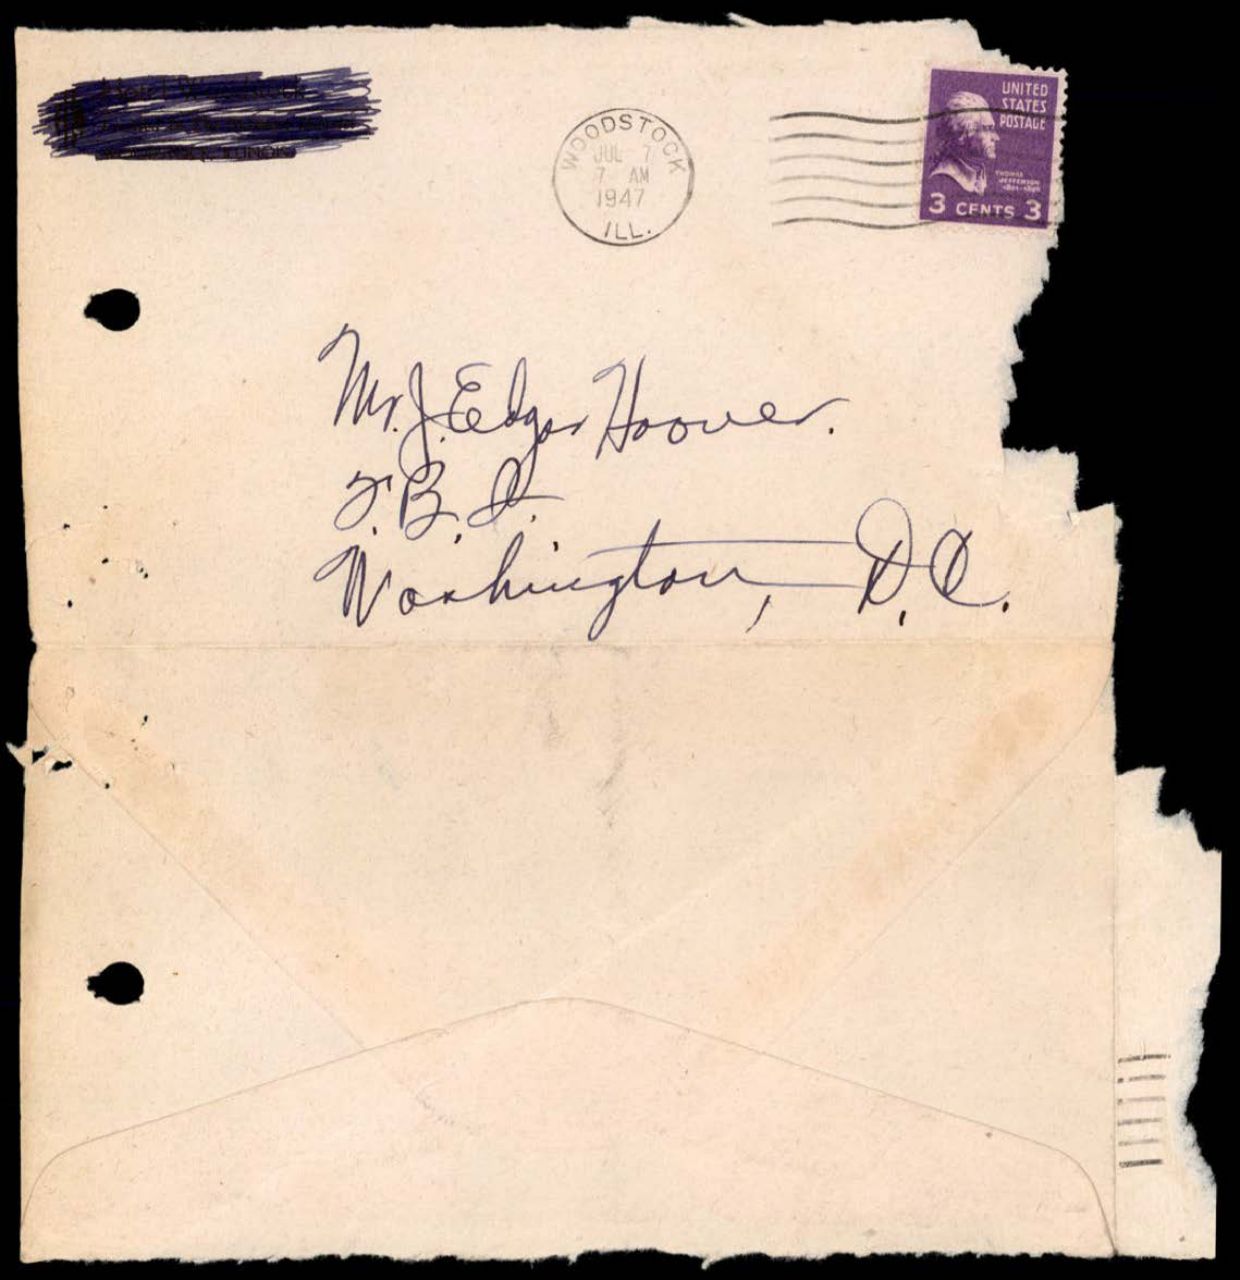 WOODSTOCK
JUL 7
7 AM
1947
ILL.
UNITED
STATES
POSTAGE
THOMAS
JEFFERSON
3 CENTS 3
Mr. J. Edgar Hoover.
F.B.I.
Washington, D.C.